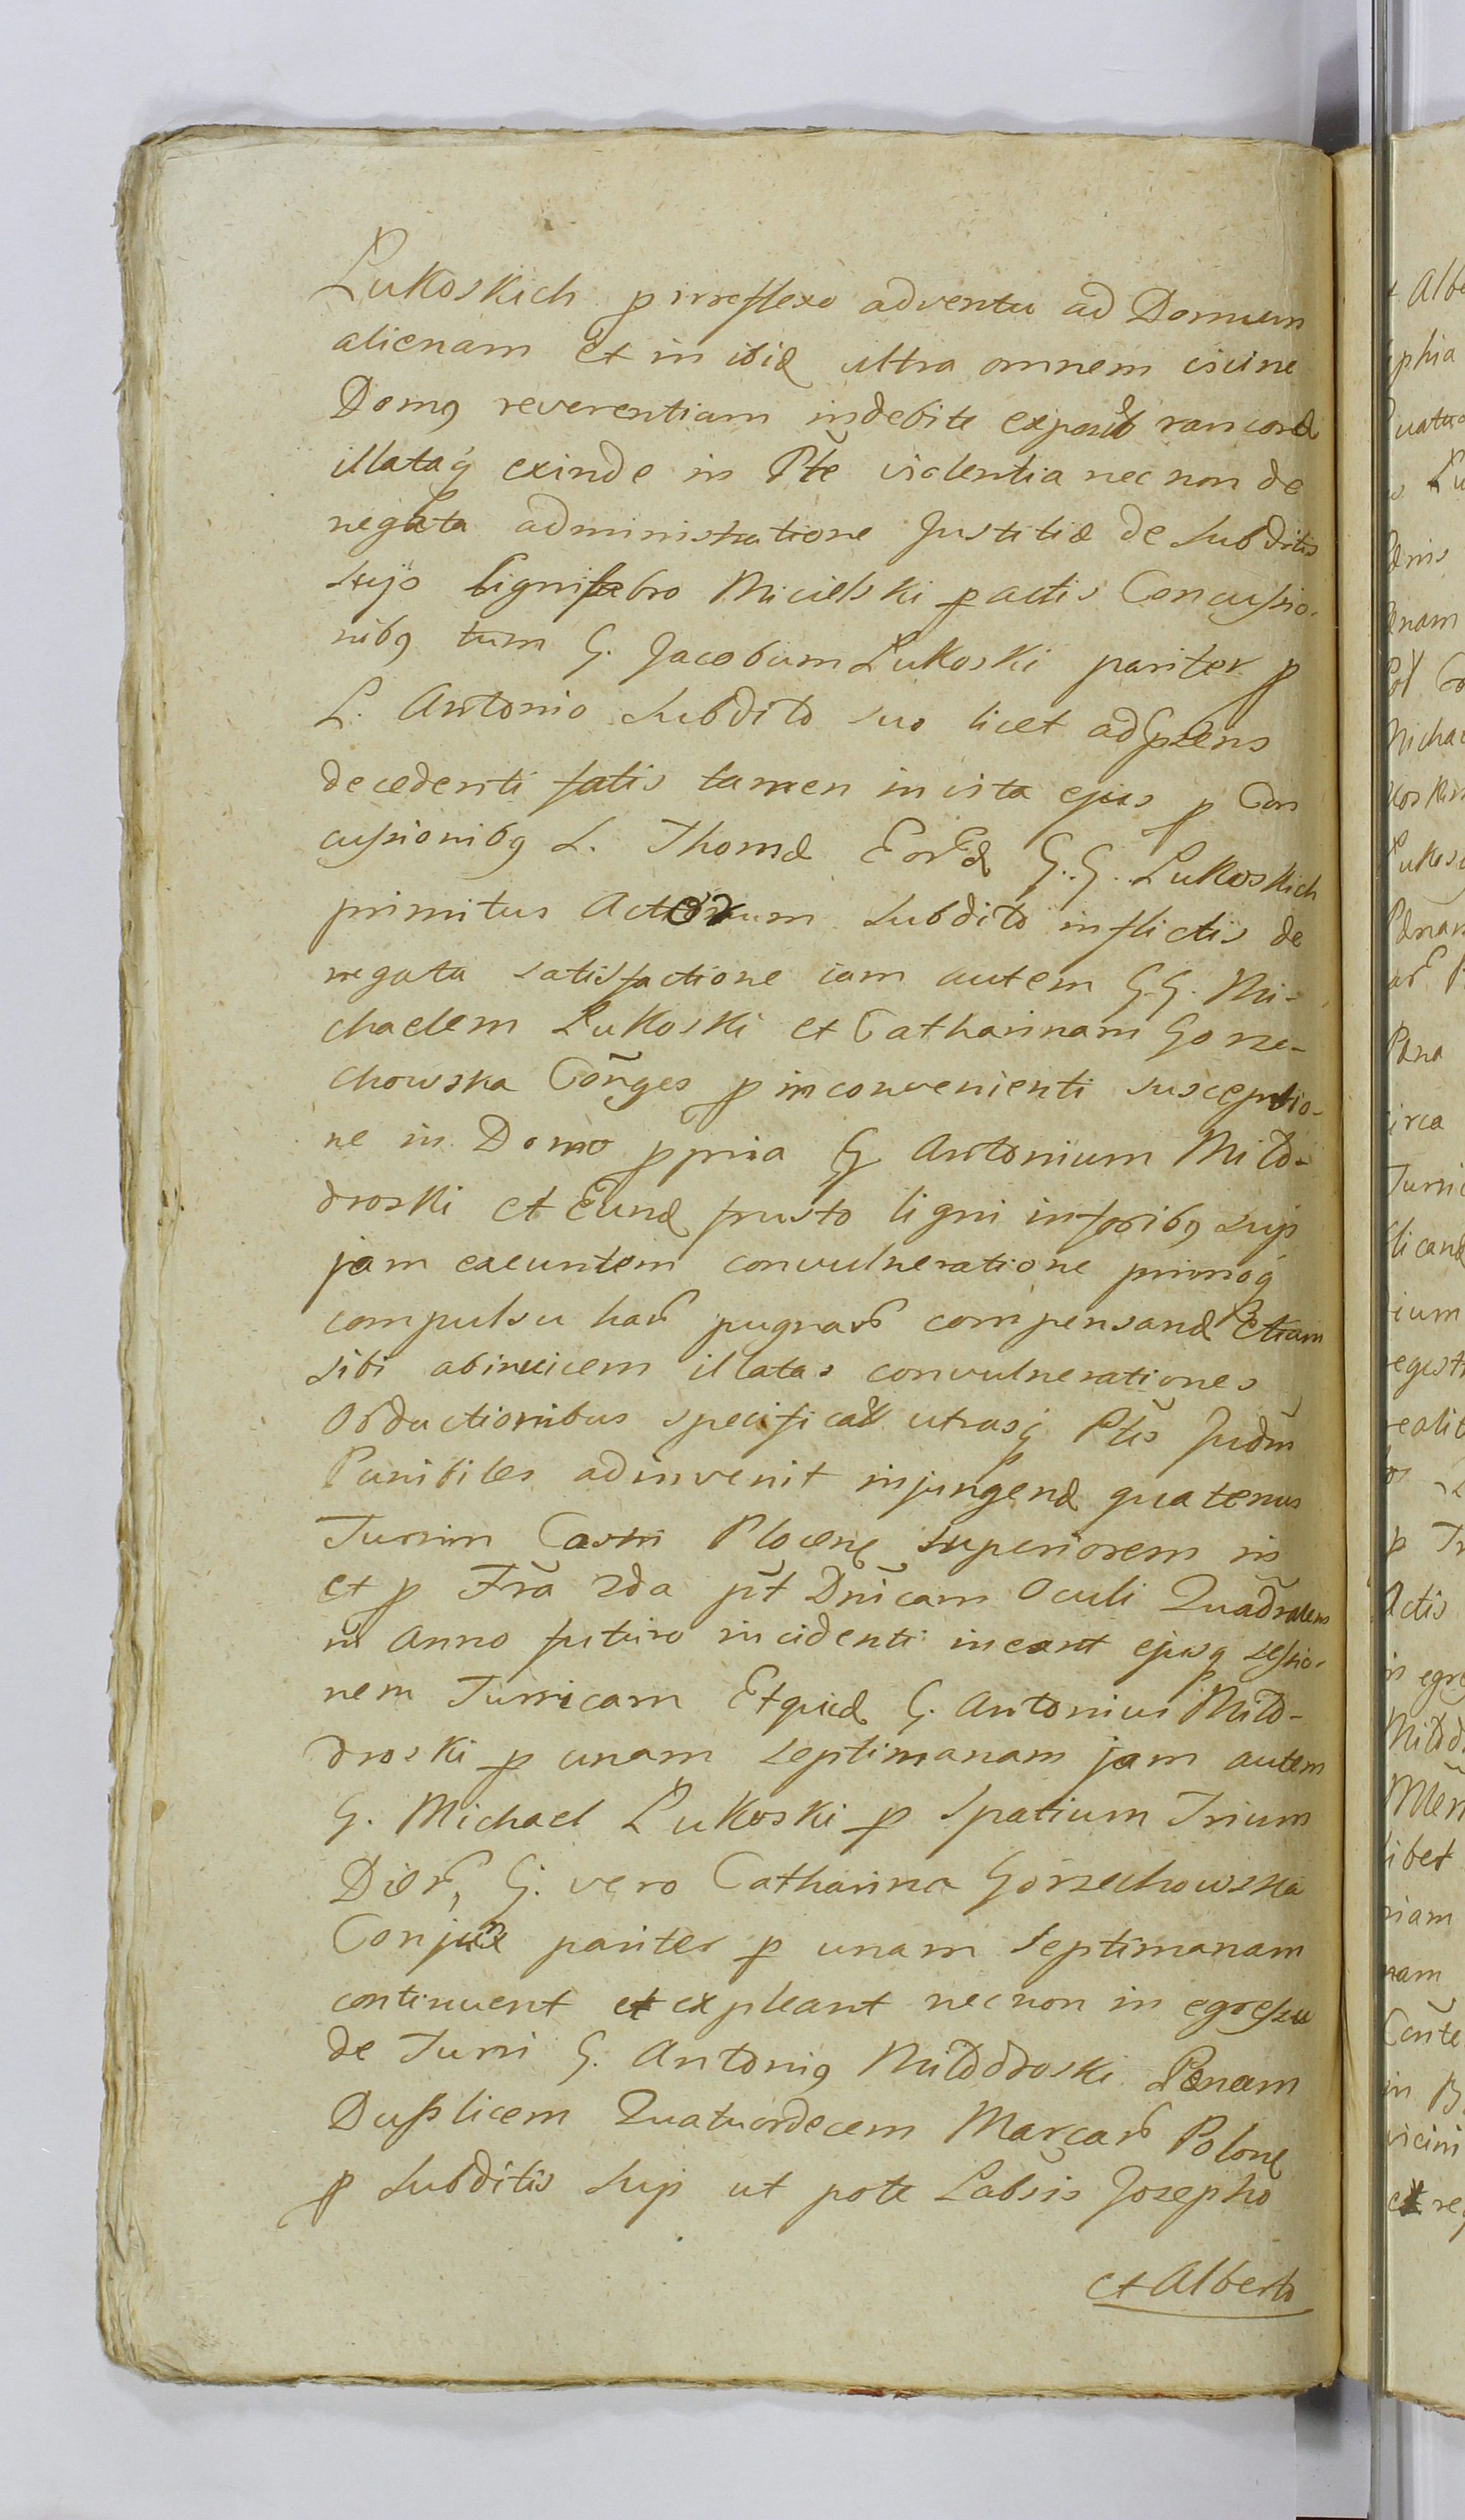 Lukoskich p irreflexo adventu ad Domum
alienam et in ibid ultra omnem vicine
Domq reverentiam indebite rancore
illataq exinde in Pte violentia nec non de
negata administratione Justitiæ de Subditis
suijs Lignifabro Micielski p actis Concussio-
nibq tum G. Jacobum Lukoski pariter p
L. Antonio Subdito suo licet ad præens
decedenti fatis tamen in vita ejus p Con
cussionibq L. Thomæ Eord G.G. Lukoskich
primitus Actorum Subdito inflictis de
negata satisfactione iam autem G.G. Mi-
chaelem Lukoski et Catharinam Gorze-
chowska Cõnges p inconvenienti susceptio-
ne in Domo ppria G Antonium Mito-
droski et Eund frusto ligni in foribq suis
jam exeuntem convulneratione primoq
compulsu har pugnar compensand Etiam
sibi abinvicem illatas convulnerationes
Obductionibus specificat utrasq Ptes Judm
Punibiles adinvenit injungend quatenus
Turrim Castri Plocens superiorem in
et p Fra 2da pt Dnicam Oculi Quadralem
in Anno futuro incidenti ineant ejusq sessio-
nem Turricam Etquid G. Antonius Mito-
droski p unam septimanam jam autem
G. Michael Lukoski p Spatium Trium
Dier, G. vero Catharina Gorzechowska
Conjux pariter p unam Septimanam
continuent et expleant nec non in egressu
de Turri G. Antoniq Mitodroski Pænam
Duplicem Quatuordecem Marcar Polone
p Subditis suis ut pote Labsis Josepho
et Alberto